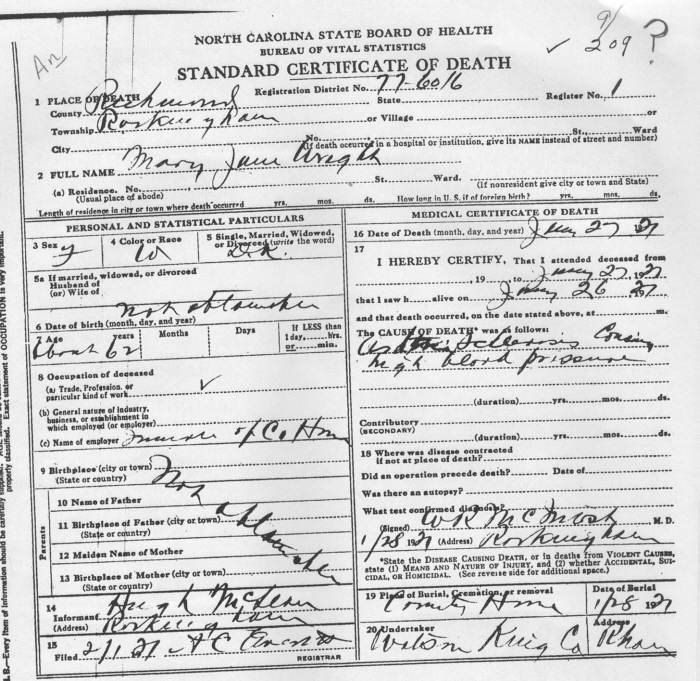 9/
✓ 209 ?
NORTH CAROLINA STATE BOARD OF HEALTH
BUREAU OF VITAL STATISTICS
STANDARD CERTIFICATE OF DEATH
1 PLACE OF DEATH Registration District No. 77-6016 Register No. 1
County Richmond State
Township Rockingham or Village or
City No. St., Ward
(If death occurred in a hospital or institution, give its NAME instead of street and number)
2 FULL NAME Mary Jane Wright
(a) Residence. No. St. Ward.
(Usual place of abode) (If nonresident give city or town and State)
Length of residence in city or town where death occurred yrs. mos. ds. How long in U. S. if of foreign birth? yrs. mos. ds.
PERSONAL AND STATISTICAL PARTICULARS
3 Sex f 4 Color or Race W 5 Single, Married, Widowed, or Divorced (write the word) D.K.
5a If married, widowed, or divorced
Husband of
(or) Wife of
not obtainable
6 Date of birth (month, day, and year)
7 Age years Months Days If LESS than
About 62 1 day, hrs.
or min.
8 Occupation of deceased
(a) Trade, Profession, or
particular kind of work ✓
(b) General nature of industry,
business, or establishment in
which employed (or employer)
(c) Name of employer Inmate of Co Home
9 Birthplace (city or town) Not
(State or country)
Parents
10 Name of Father
11 Birthplace of Father (city or town) obtainable
(State or country)
12 Maiden Name of Mother
13 Birthplace of Mother (city or town)
(State or country)
14
Informant Hugh McLean
(Address) Rockingham
15
Filed 2/1 27 A C
REGISTRAR
MEDICAL CERTIFICATE OF DEATH
16 Date of Death (month, day, and year) Jany 27 27
17
I HEREBY CERTIFY, That I attended deceased from
, 19 to Jany 27, 1927
that I saw h alive on Jany 26 1927
and that death occurred, on the date stated above, at m.
The CAUSE OF DEATH* was as follows:
Sclerosis Causing
high blood pressure
(duration) yrs. mos. ds.
Contributory
(SECONDARY)
(duration) yrs. mos. ds.
18 Where was disease contracted
if not at place of death?
Did an operation precede death? Date of
Was there an autopsy?
What test confirmed diagnosis?
(Signed) W R McIntosh M. D.
1/28 1927 (Address) Rockingham
*State the DISEASE CAUSING DEATH, or in deaths from VIOLENT CAUSES,
state (1) MEANS AND NATURE OF INJURY, and (2) whether ACCIDENTAL, SUI-
CIDAL, or HOMICIDAL. (See reverse side for additional space.)
19 Place of Burial, Cremation, or removal Date of Burial
County Home 1/28 1927
20 Undertaker Address
Watson King Co Rham
B.—Every item of information should be carefully supplied.
properly classified. Exact statement of OCCUPATION is very important.